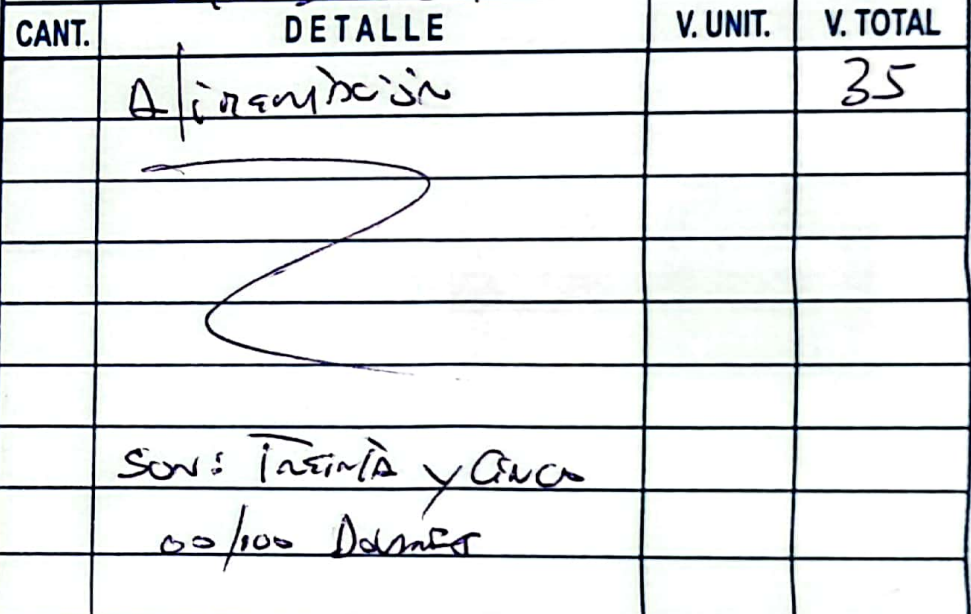 CANT. DETALLE V. UNIT. V. TOTAL
Alimentación 35
Son: Treinta y Cinco
00/100 Dolares